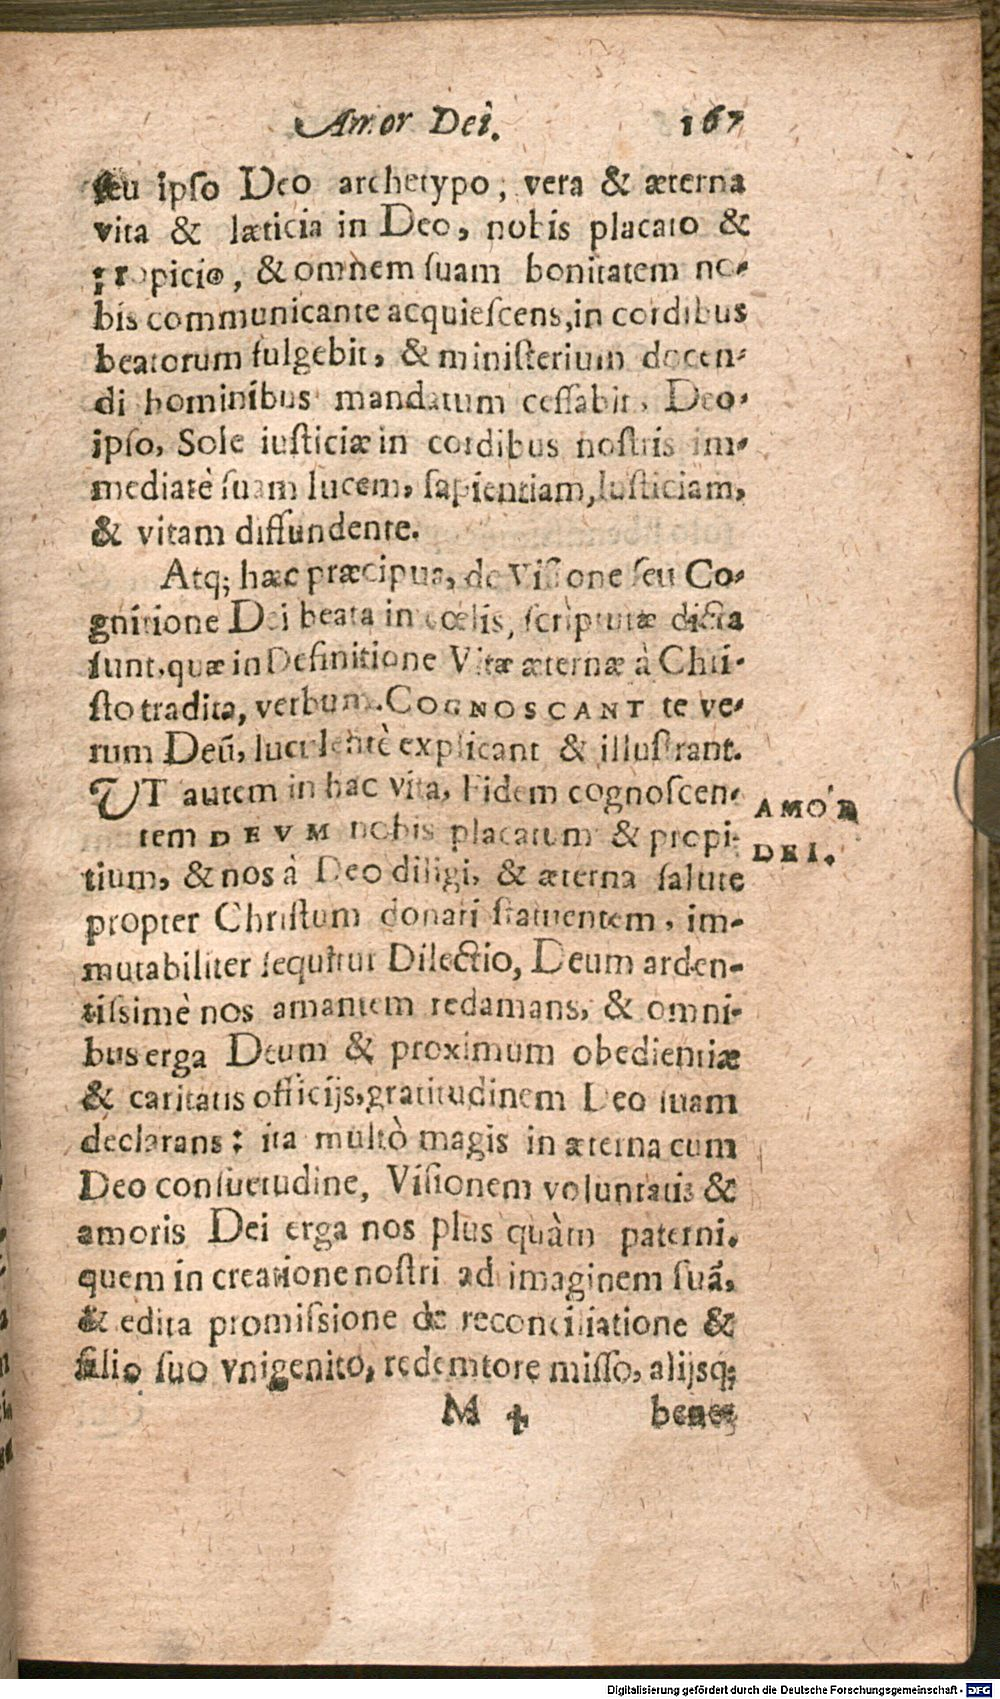 Amor Dei. 167
seu ipſo Deo archetypo, vera & æterna
vita & læticia in Deo, nobis placato &
propicio, & omnem ſuam bonitatem no-
bis communicante acquieſcens, in cordibus
beatorum fulgebit, & miniſterium docen-
di hominibus mandatum ceſſabit, Deo
ipſo, Sole iuſticiæ in cordibus noſtris im-
mediatè ſuam lucem, ſapientiam, Iuſticiam,
& vitam diffundente.
Atq; hæc præcipua, de Viſione ſeu Co-
gnitione Dei beata in cœlis, ſcripturæ dicta
ſunt, quæ in Definitione Vitæ æternæ à Chri-
ſto tradita, verbum. COGNOSCANT te ve-
rum Deū, luculentè explicant & illuſtrant.
UT autem in hac vita, Fidem cognoſcen-
AMOR
tem DEVM nobis placatum & propi-
DEI.
tium, & nos à Deo diligi, & æterna ſalute
propter Chriſtum donari ſtatuentem, im-
mutabiliter ſequitur Dilectio, Deum arden-
tiſsimè nos amantem redamans, & omni-
bus erga Deum & proximum obedientiæ
& caritatis officijs, gratitudinem Deo ſuam
declarans: ita multò magis in æterna cum
Deo conſuetudine, Viſionem voluntatis &
amoris Dei erga nos plus quàm paterni.
quem in creatione noſtri ad imaginem ſuā,
& edita promiſsione de reconciliatione &
filio ſuo vnigenito, redemtore miſſo, alijsq;
M 4 bene-
Digitalisierung gefördert durch die Deutsche Forschungsgemeinschaft - DFG